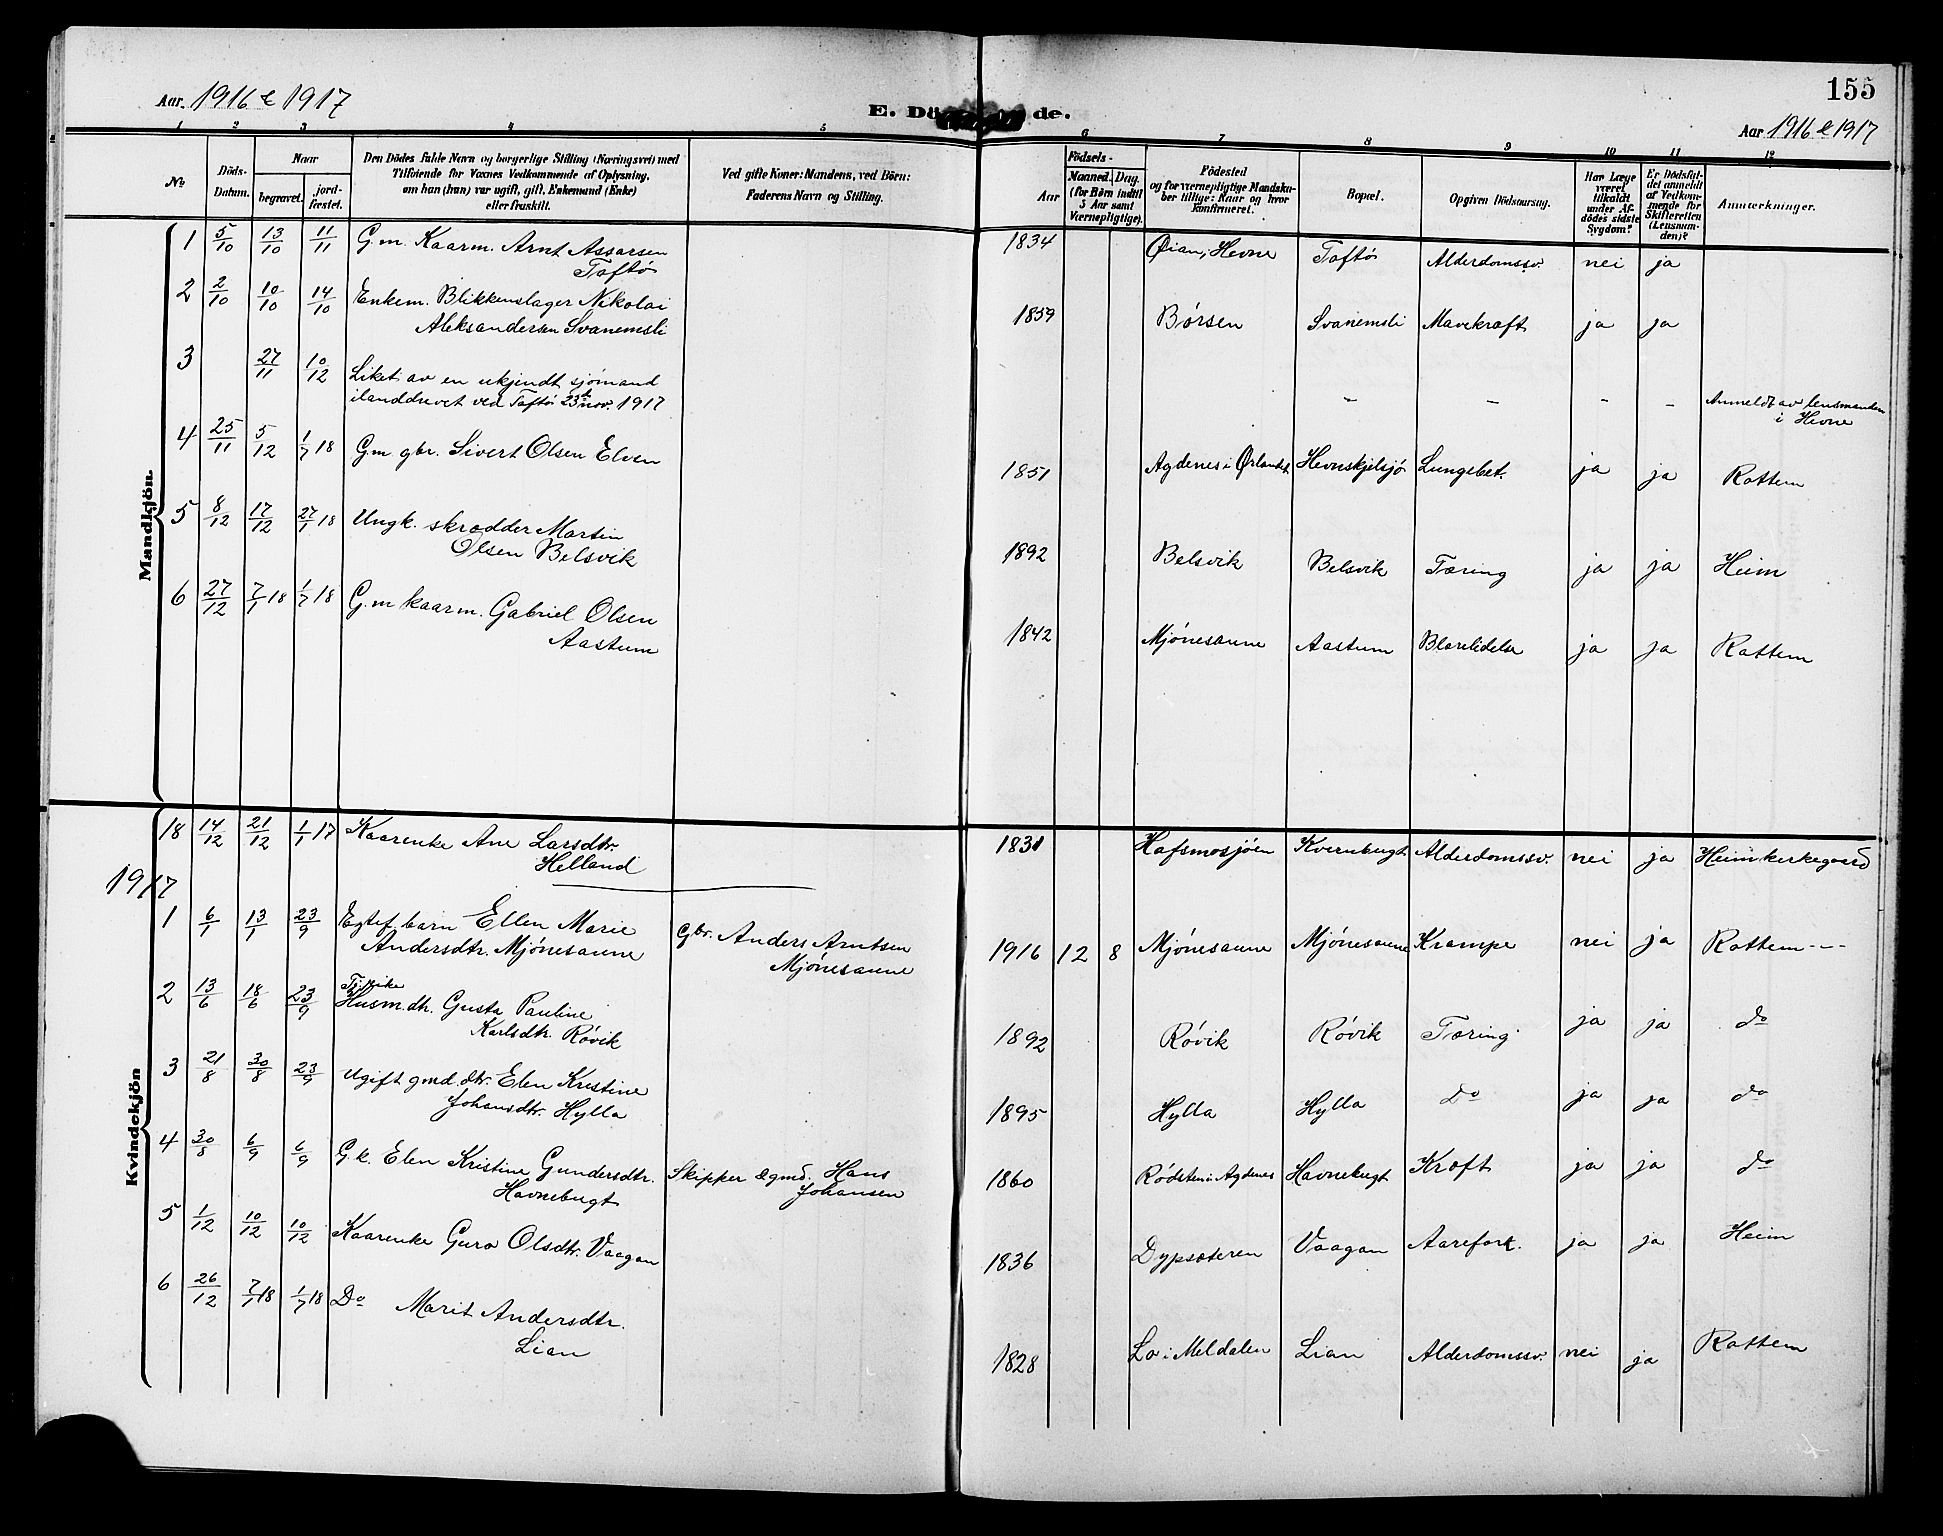 155
Aar. 1916 & 1917
E. Dö de.
Aar 1916 & 1917
1 2 3 4 5 6 7 8 9 10 11 12
No
Döds-Datum.
Naar
begravet.
jord-fæstet.
Den Dödes fulde Navn og borgerlige Stilling (Næringsvei) med
Tilföiende for Voxnes Vedkommende af Oplysning,
om han (hun) var ugift, gift, Enkemand (Enke)
eller fraskilt.
Ved gifte Koner: Mandens, ved Börn:
Faderens Navn og Stilling.
Födsels-
Aar
Maaned. Dag.
(for Börn indtil
5 Aar samt
Værnepligtige).
Födested
og for værnepligtige Mandska-
ber tillige: Naar og hvor
konfirmeret.
Bopæl.
Opgiven Dödsaarsag.
Har Læge
været
tilkaldt
under Af-
dödes sidste
Sygdom?
Er Dödsfal-
det anmeldt
af Vedkom-
mende for
Skifteretten
(Lensman-
den)?
Anmærkninger.
Mandkjön.
1 5/10 13/10 11/11 G.m. Kaarm. Arnt Assarsen 1834 Øian, Hevne Taftø Alderdomssv. nei ja
Taftø
2 2/10 10/10 14/10 Enkem. Blikkenslager Nikolai 1859 Børsen Svanemsli Mavekræft ja ja
Aleksandersen Svanemsli
3 27/11 10/12 Liket av en ukjendt sjömand
ilanddrevet ved Taftø 23de nov. 1917 – – – – Anmeldt av lensmanden
i Hevne
4 25/11 5/12 1/7 18 G.m. gbr. Sivert Olsen Elven 1851 Agdenes i Ørlandet Hevnskjelsjø Lungebet. ja ja Rottem
5 8/12 17/12 27/1 18 Ungk. skrædder Martin 1892 Belsvik Belsvik Tæring ja ja Heim
Olsen Belsvik
6 27/12 7/1 18 1/7 18 G.m kaarm. Gabriel Olsen 1842 Mjönesaune Aastum Blærelidelse ja ja Rottem
Aastum
Kvindekjön
18 14/12 21/12 1/1 17 Kaarenke Ane Larsdtr. 1831 Hafsmosjøen Kvernbugt Alderdomssv. nei ja Heim kirkegaard
Helland
1917
1 6/1 13/1 23/9 Egtef. barn Ellen Marie Gbr. Anders Arntsen 1916 12 8 Mjönesaune Mjönesaune Krampe nei ja Rottem---
Andersdtr. Mjönesaune Mjönesaune
2 13/6 18/6 23/9 Husm.dtr. Gusta Pauline 1892 Røvik Røvik Tæring ja ja do
Karlsdtr. Røvik
3 21/8 30/8 23/9 Ugift gmd.dtr. Elen Kristine 1895 Hylla Hylla Do ja ja do
Johansdtr. Hylla
4 30/8 6/9 6/9 G.k. Elen Kristine Gundersdtr. Skipper & gmd. Hans 1860 Rödsten i Agdenes Havnebugt Kræft ja ja do
Havnebugt Johansen
5 1/12 10/12 10/12 Kaarenke Guro Olsdtr. Vaagan 1836 Dypsæteren Vaagan Aarefork. ja ja Heim
6 26/12 7/1 18 1/7 18 Do Marit Andersdtr. 1828 Lo i Meldalen Lian Alderdomssv. nei ja Rottem
Lian